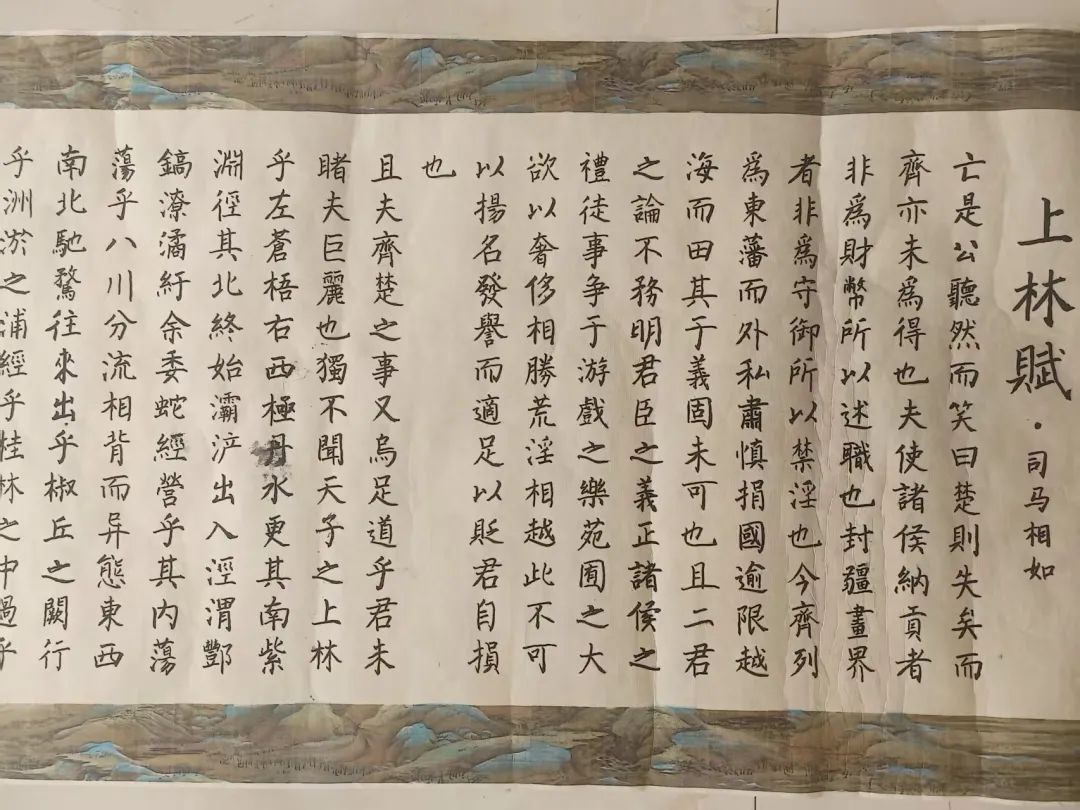 上林賦·司马相如
亡是公聽然而笑曰楚則失矣而
齊亦未爲得也夫使諸侯納貢者
非爲財幣所以述職也封疆畫界
者非爲守御所以禁淫也今齊列
爲東藩而外私肅慎捐國逾限越
海而田其于義固未可也且二君
之論不務明君臣之義正諸侯之
禮徒事争于游戲之樂苑囿之大
欲以奢侈相勝荒淫相越此不可
以揚名發譽而適足以貶君自損
也
且夫齊楚之事又烏足道乎君未
睹夫巨麗也獨不聞天子之上林
乎左蒼梧右西極丹水更其南紫
淵徑其北終始灞浐出入涇渭酆
鎬潦潏紆余委蛇經營乎其内蕩
蕩乎八川分流相背而异態東西
南北馳騖往來出乎椒丘之闕行
乎洲淤之浦經乎桂林之中過乎